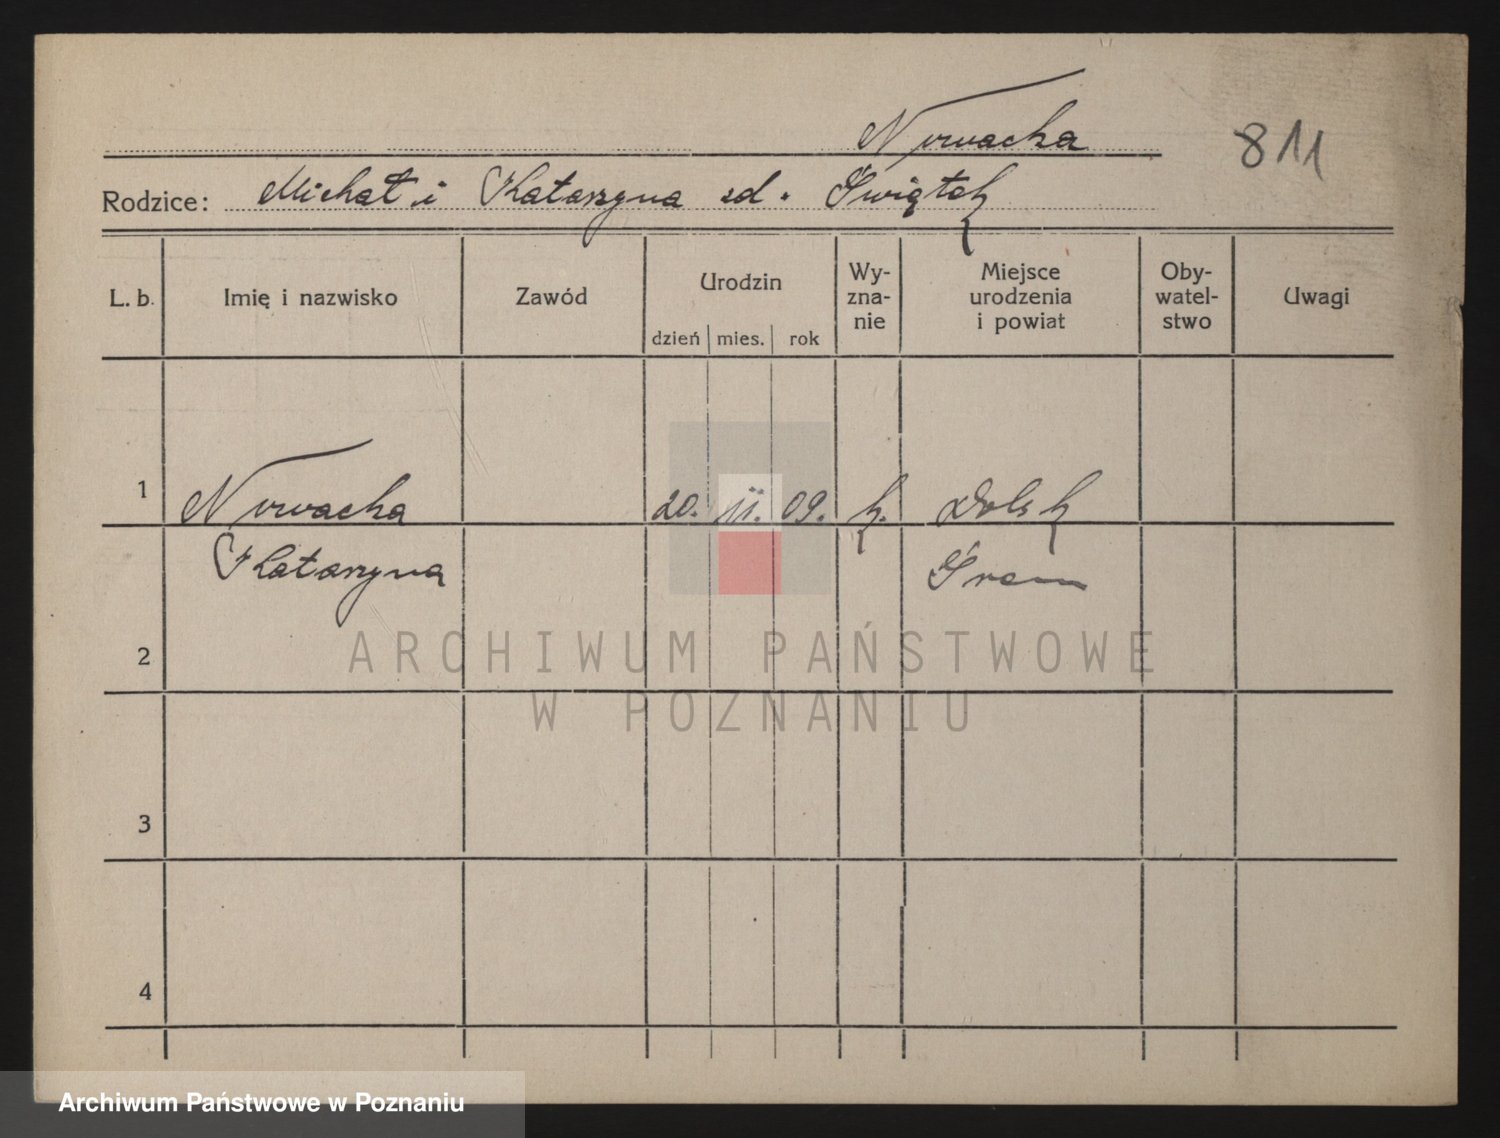 Nowacka
811
Rodzice: Michał i Katarzyna zd. Świątek
L. b. Imię i nazwisko Zawód Urodzin Wy-zna-nie Miejsce urodzenia i powiat Oby-watel-stwo Uwagi
dzień mies. rok
1 Nowacka 20. 11. 09. k. Dolsk
Katarzyna Śrem
2
ARCHIWUM PAŃSTWOWE
W POZNANIU
3
4
Archiwum Państwowe w Poznaniu